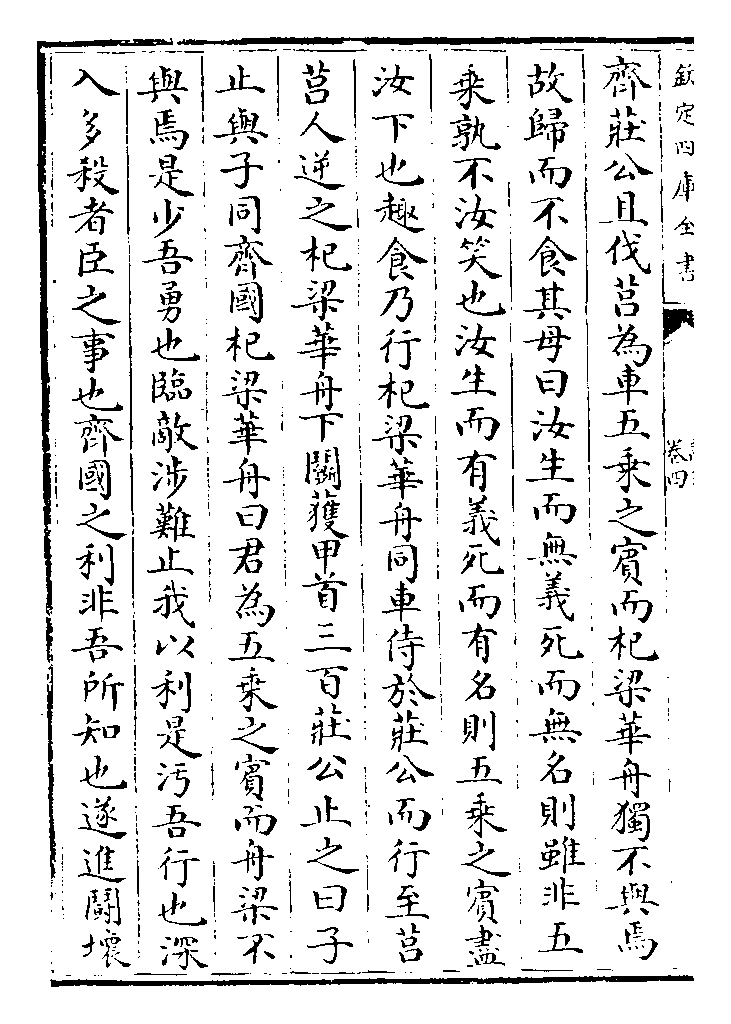 欽定四庫全書
卷四
齊莊公且伐莒為車五乘之賓而杞梁華舟獨不與焉
故歸而不食其母曰汝生而無義死而無名則雖非五
乘孰不汝笑也汝生而有義死而有名則五乘之賓盡
汝下也趣食乃行杞梁華舟同車侍於莊公而行至莒
莒人逆之杞梁華舟下鬬獲甲首三百莊公止之曰子
止與子同齊國杞梁華舟曰君為五乘之賓而舟梁不
與焉是少吾勇也臨敵涉難止我以利是污吾行也深
入多殺者臣之事也齊國之利非吾所知也遂進鬬壞